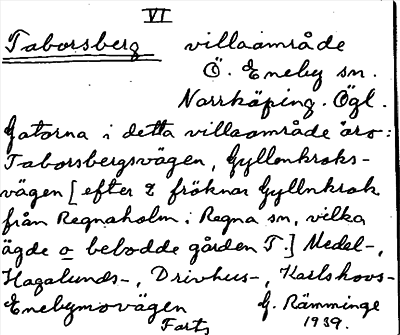 VI
Taborsberg villaområde
Ö. Eneby sn.
Norrköping. Ögl.
Gatorna i detta villaområde äro:
Taborsbergsvägen, Gyllenkroks-
vägen [efter 2 fröknar Gyllnkrok
från Regnaholm i Regna sn, vilka
ägde o bebodde gården T.] Medel-,
Hagalunds-, Drivhus-, Karlshovs-
Enebymovägen G. Rämminge
Forts 1939.